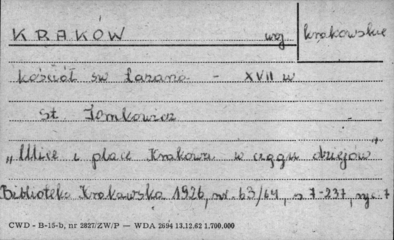 KRAKÓW woj krakowskie
kościół św Łazarza - XVII w
St Tomkowicz
„Ulice i place Krakowa w ciągu dziejów"
Biblioteka Krakowska 1926, nr. 63/64, s 7-237, ryc. 7
CWD - B-15-b, nr 2827/ZW/P — WDA 2694 13.12.62 1.700.000